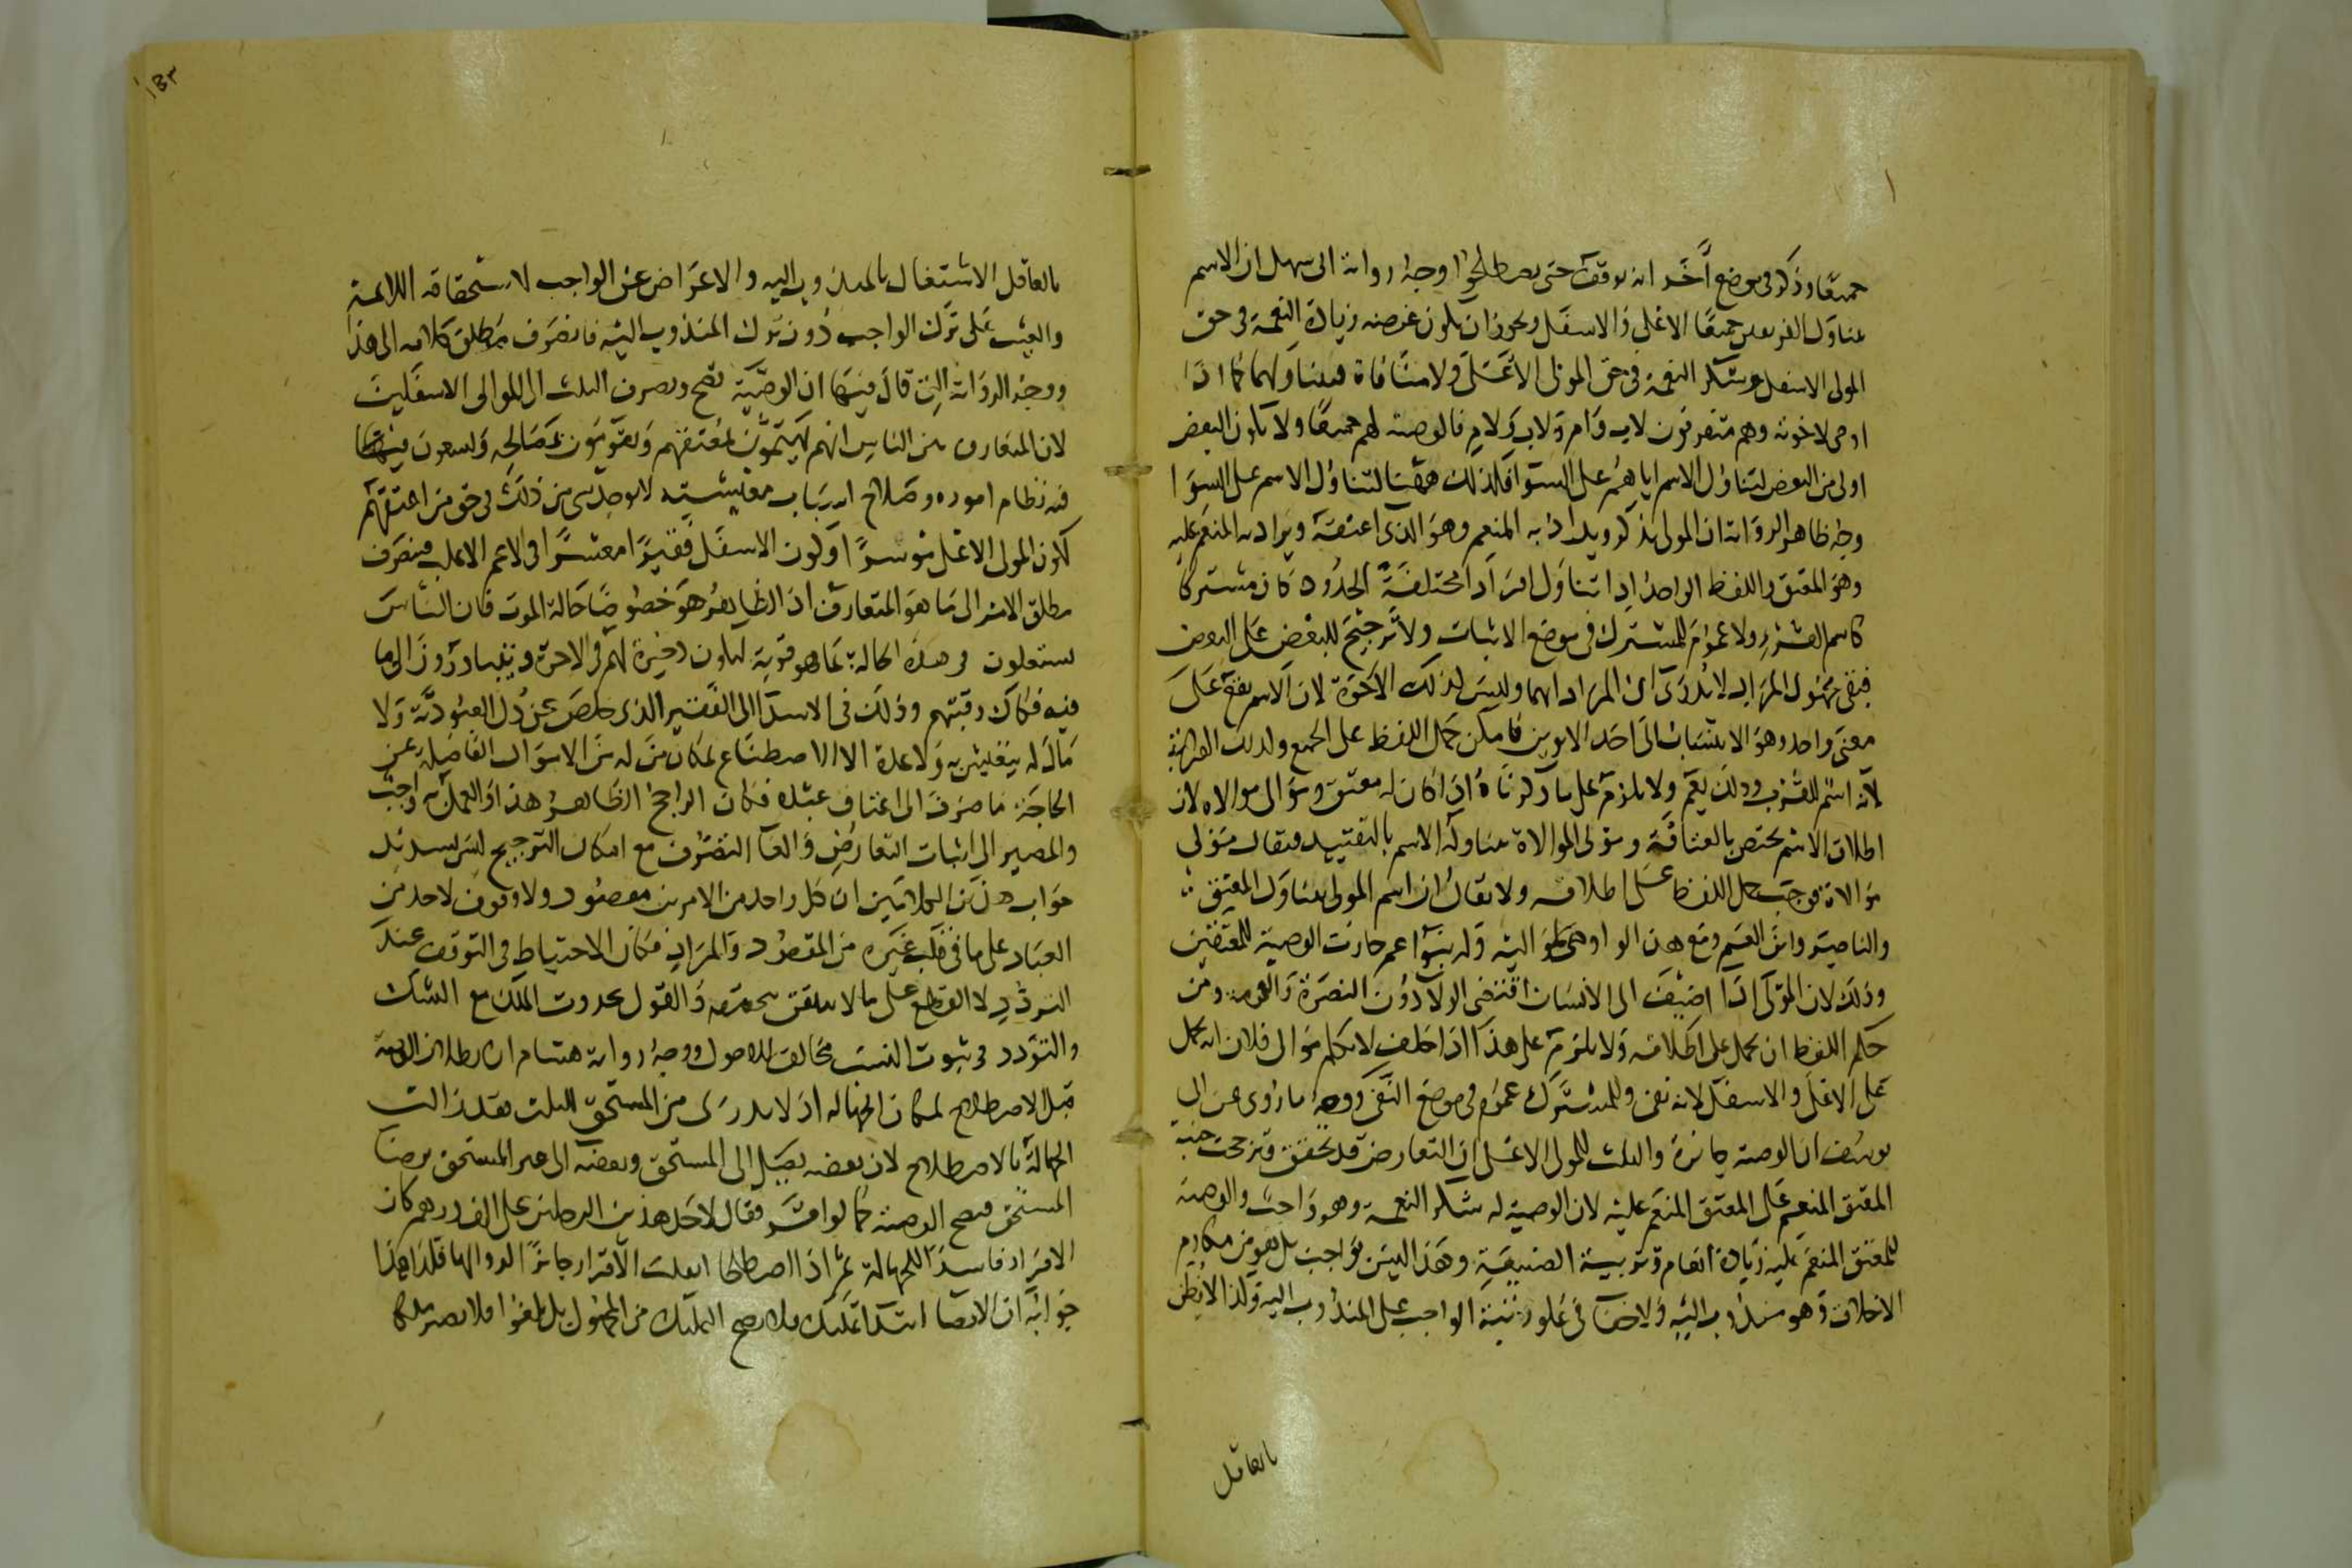 جميعا وذكر في موضع آخر انه يوقف حتى يصطلحوا وجه رواية ابي سهل ان الاسم
يتناول الفريقين جميعا الاعلى والاسفل ويجوز ان يكون غرضه زيادة النعمة في حق
المولى الاسفل وشكر النعمة في حق المولى الاعلى ولا منافاة فيتناولهما كما اذا
اوصى لاخوته وهم متفرقون لاب وام ولاب ولام فالوصية لهم جميعا ولا يكون البعض
اولى من البعض لتناول الاسم اياهم على السوا فكذلك ههنا لتناول الاسم على السوا
وجه ظاهر الرواية ان المولى يذكر ويراد به المنعم وهو الذي اعتقه ويراد به المنعم عليه
وهو المعتق واللفظ الواحد اذا تناول افرادا مختلفة الحدود كان مشتركا
كاسم القرء ولا عموم للمشترك في موضع الاثبات ولا ترجيح للبعض على البعض
فبقي مجهول المراد لا يدرى ان المراد ايهما وليس كذلك الاخوة لان الاسم يقع على
معنى واحد وهو الانتساب الى احد الابوين فامكن حمل اللفظ على الجمع وكذلك القرابة
لانه اسم للقرب وذلك يعم ولا يلزم على ما ذكرناه اذا كان له معتق ومولى موالاة لان
اطلاق الاسم يختص بالعتاقة ومولى الموالاة يتناوله الاسم بالتقييد فيقال مولى
موالاة فوجب حمل اللفظ على اطلاقه ولا يقال ان اسم المولى يتناول المعتق
والناصر وابن العم ومع هذا لو اوصى لمواليه وله بنوا عم جازت الوصية للمعتقين
وذلك لان المولى اذا اضيف الى الانسان اقتضى الولا دون النصرة والعمومة ومن
حكم اللفظ ان يحمل على اطلاقه ولا يلزم على هذا اذا حلف لا يكلم موالى فلان انه يحمل
على الاعلى والاسفل لانه نفى وللمشترك عموم في موضع النفي ووجه ما روى عن ابي
يوسف ان الوصية جائزة والثلث للمولى الاعلى ان التعارض قد تحقق وترجحت جنبة
المعتق المنعم على المعتق المنعم عليه لان الوصية له شكر النعمة وهو واجب والوصية
للمعتق المنعم عليه زيادة انعام وتربية الصنيعة وهذا ليس بواجب بل هو من مكارم
الاخلاق وهو مندوب اليه ولا خفا في علو رتبة الواجب على المندوب اليه ولذا لا يظن
بالعاقل
١٥٣
بالعاقل الاشتغال بالمندوب اليه والاعراض عن الواجب لاستحقاقه اللائمة
والعيب على ترك الواجب دون ترك المندوب اليه فانصرف مطلق كلامه الى هذا
ووجه الرواية التي قال فيها ان الوصية تصح ويصرف الثلث الى الموالى الاسفلين
لان المتعارف بين الناس انهم يهتمون بمعتقهم ويقومون بمصالحه ويسعون فيما
فيه نظام اموره وصلاح اسباب معيشته لا يوجد شى من ذلك في حق من اعتقهم
لكون المولى الاعلى موسرا وكون الاسفل فقيرا معسرا في الاعم الاغلب فينصرف
مطلق الامر الى ما هو المتعارف اذ الظاهر هو خصوصا حالة الموت فان الناس
يشتغلون في هذه الحالة بما هو قربة ليكون ذخيرة لهم في الاخرة ويتبادرون الى ما
فيه فكاك رقبتهم وذلك في الاسدا الى الفقير الذي خلص عن ذل العبودية ولا
مال له يتعيش به ولا عدة الا الاصطناع بمكان من له من الاموال الفاضلة عن
الحاجة ما صرف الى اعتاق عبده فكان الراجح الظاهر هذا والعمل به واجب
والمصير الى اثبات التعارض والغا التصرف مع امكان الترجيح ليس بسديد
جواب هذين الكلامين ان كل واحد من الامرين مقصود ولا وقوف لاحد من
العباد على ما في قلب غيره من المقصود والمراد فكان الاحتياط في التوقف عند
التردد لا القطع على ما لا يتيقن بحقيقته والقول بحدوث الملك مع الشك
والتردد في ثبوت السبب مخالف للاصول ووجه رواية هشام ان بطلان الوصية
قبل الاصطلاح لمكان الجهالة اذ لا يدرى من المستحق للثلث فقد زالت
الجهالة بالاصطلاح لان بعضه يصل الى المستحق وبعضه الى غير المستحق برضا
المستحق فيصح الوصية كما لو اقر وقال لاحد هذين الرجلين على الف درهم كان
الاقرار فاسدا للجهالة ثم اذا اصطلحا انقلب الاقرار جائزا لزوالها فكذا هذا
جوابه ان الايصا ابتدا تمليك فلا يصح التمليك من المجهول بل يلغوا فلا يصير ملكا